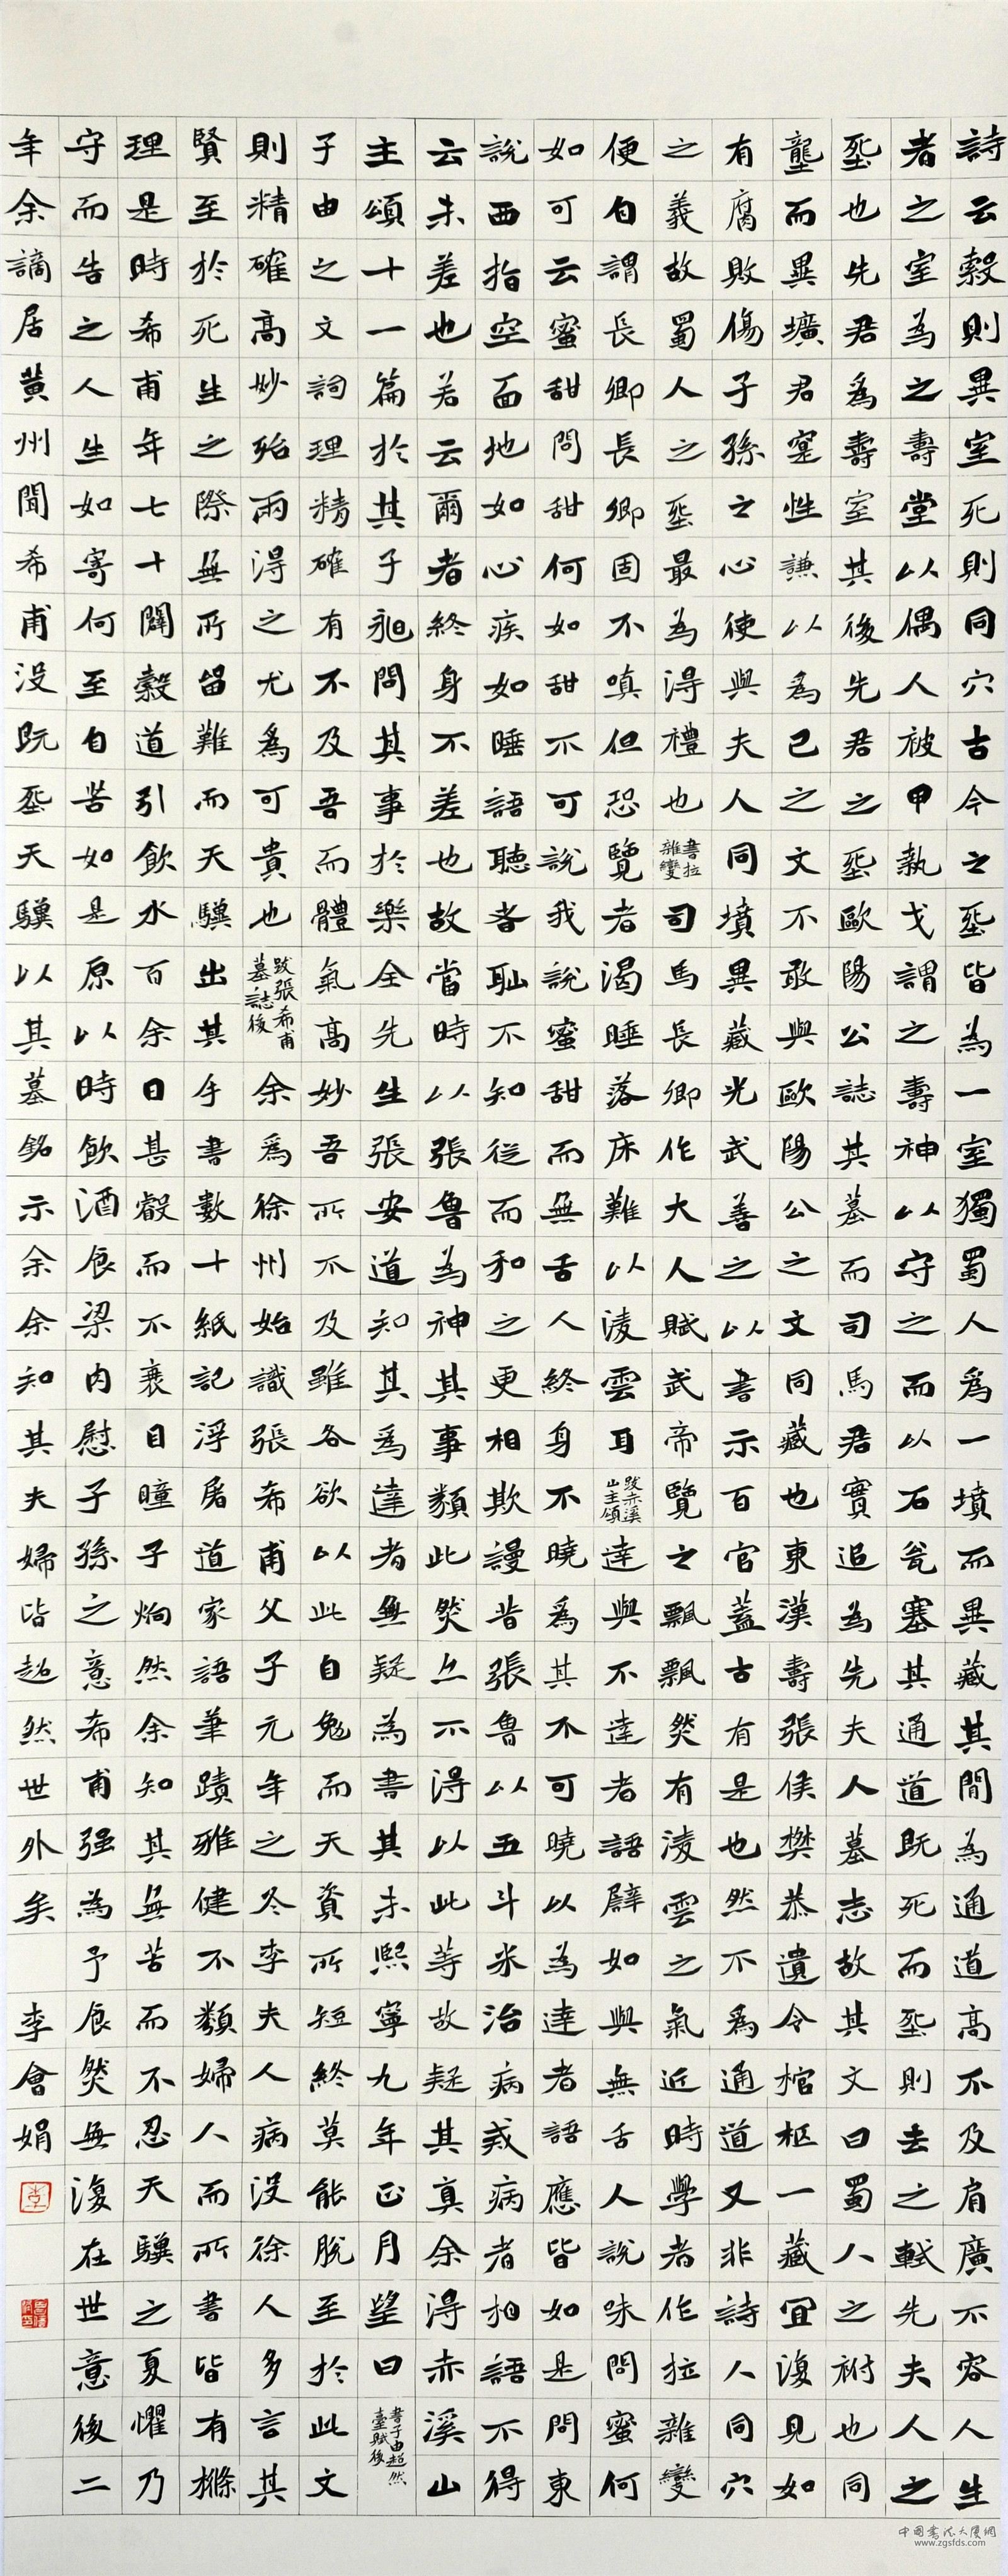 詩云穀則異室死則同穴古今之塟皆為一室獨蜀人爲一墳而異藏其間為通道高不及肩廣不容人生
者之室為之壽堂以偶人被甲執戈謂之壽神以守之而以石瓮塞其通道既死而塟則去之軾先夫人之
塟也先君爲壽室其後先君之塟歐陽公誌其墓而司馬君實追為先夫人墓志故其文曰蜀人之祔也同
壟而異壙君寔性謙以爲己之文不敢與歐陽公之文同藏也東漢壽張侯樊恭遺令棺柩一藏宜復見如
有腐敗傷子孫之心使與夫人同墳異藏光武善之以書示百官蓋古有是也然不爲通道又非詩人同穴
之義故蜀人之塟最為得禮也書拉雜變司馬長卿作大人賦武帝覽之飄飄然有淩雲之氣近時學者作拉雜變
便自謂長卿長卿固不嗔但恐覽者渴睡落床難以淩雲耳跋赤溪山主頌達與不達者語譬如與無舌人說味問蜜何
如可云蜜甜問甜何如甜不可說我說蜜甜而無舌人終身不曉爲其不可曉以為達者語應皆如是問東
說西指空面地如心疾如睡語聽者恥不知從而和之更相欺謾昔張魯以五斗米治病戒病者相語不得
云未差也若云爾者終身不差也故當時以張魯為神其事類此然亦不得以此等故疑其真余得赤溪山
主頌十一篇於其子昶問其事於樂全先生張安道知其爲達者無疑為書其末熙寧九年正月望日書子由超然臺賦後
子由之文詞理精確有不及吾而體氣高妙吾所不及雖各欲以此自勉而天資所短終莫能脫至於此文
則精確高妙殆兩得之尤爲可貴也跋張希甫墓誌後余爲徐州始識張希甫父子元年之冬李夫人病沒徐人多言其
賢至於死生之際無所留難而天驥出其手書數十紙記浮屠道家語筆蹟雅健不類婦人而所書皆有條
理是時希甫年七十闢穀道引飲水百余日甚癯而不衰目瞳子炯然余知其無苦而不忍天驥之夏懼乃
守而告之人生如寄何至自苦如是原以時飲酒食粱内慰子孫之意希甫强為予食然無復在世意後二
年余謫居黃州聞希甫沒既塟天驥以其墓銘示余余知其夫婦皆超然世外矣 李會娟
中国書法大廈網
www.zgsfds.com